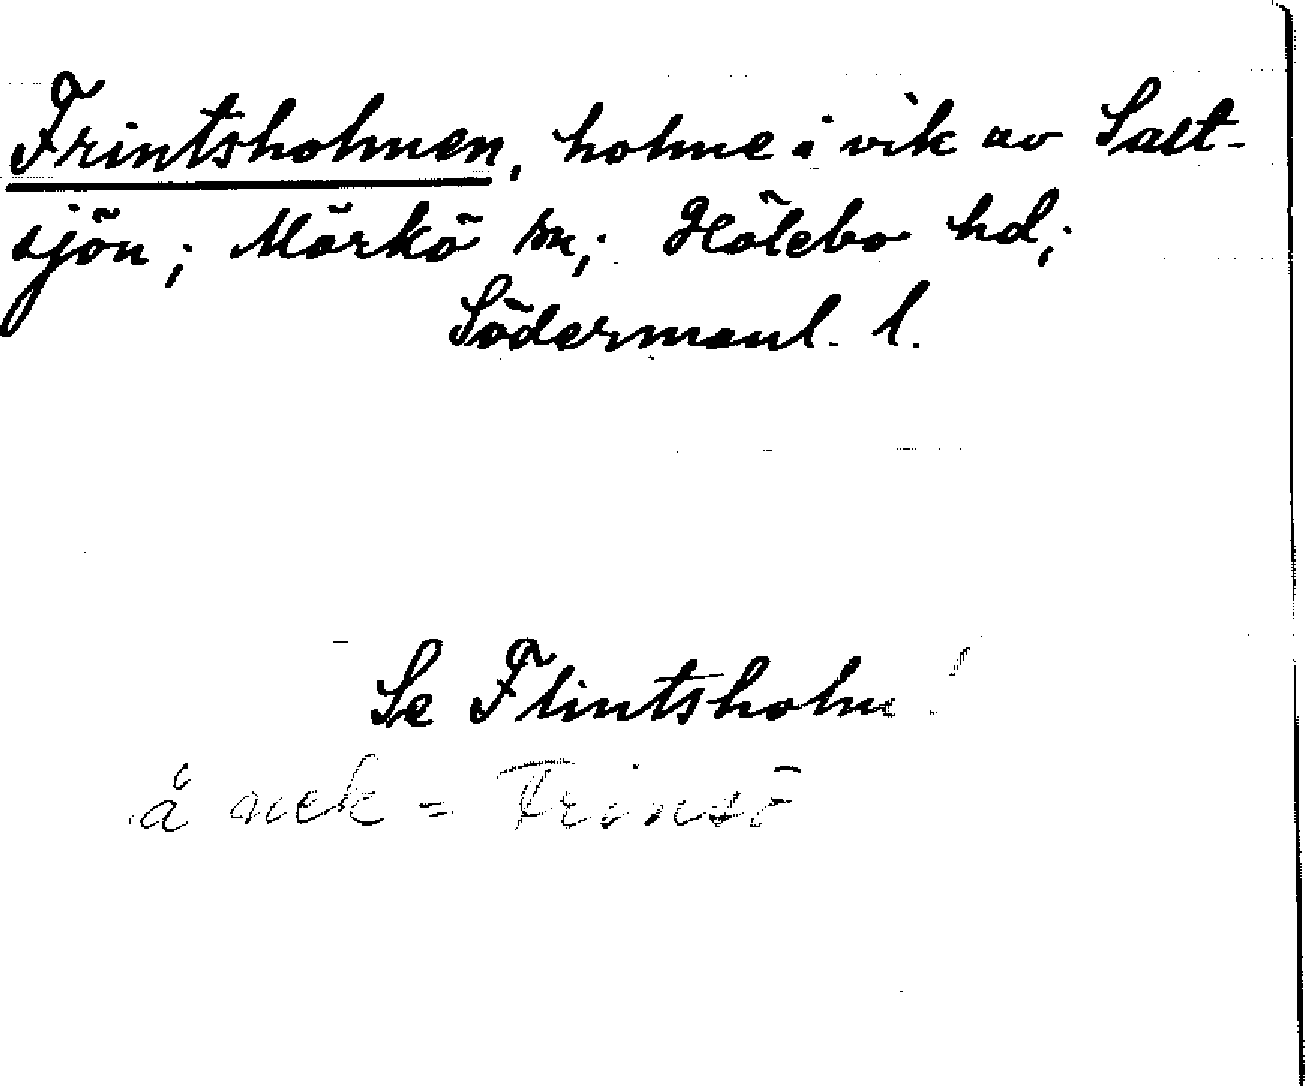 Frintsholmen, holme i vik av Salt-
sjön; Mörkö sn; Hölebo hd;
Södermanl. l.
Se Flintsholm!
å ǝek = Frinsö